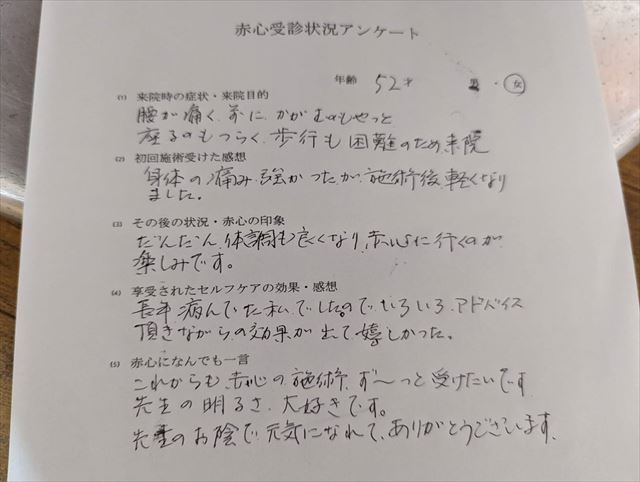 赤心受診状況アンケート
年齢 52才 男・女
(1) 来院時の症状・来院目的
腰が痛く、前に、かがむのもやっと
座るのもつらく、歩行も困難のため来院
(2) 初回施術受けた感想
身体の痛み強かったが、施術後軽くなり
ました。
(3) その後の状況・赤心の印象
だんだん、体調も良くなり、赤心に行くのが
楽しみです。
(4) 享受されたセルフケアの効果・感想
長年病んでた私でしたので、いろいろ、アドバイス
頂きながらの効果が出て嬉しかった。
(5) 赤心になんでも一言
これからも、赤心の施術、ず〜っと受けたいです
先生の明るさ、大好きです。
先生のお陰で元気になれて、ありがとうございます、